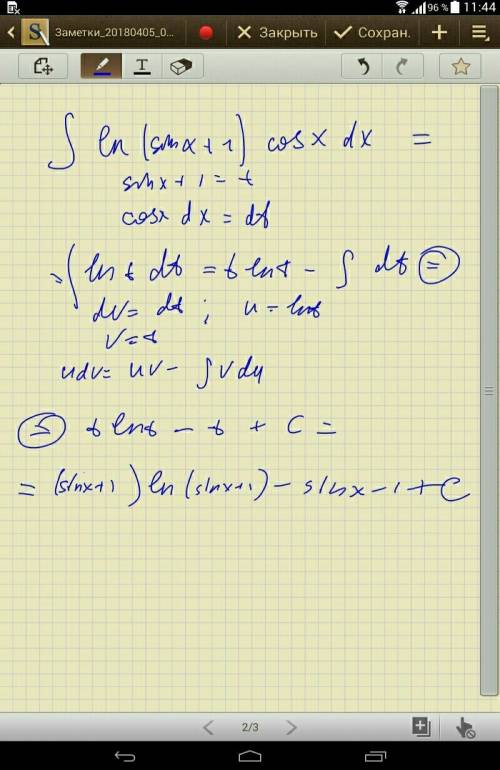 96 % 11:44
Заметки_20180405_0... Закрыть Сохран.
∫ ln (sinx + 1) cosx dx =
sinx + 1 = t
cosx dx = dt
= ∫ ln t dt = t lnt - ∫ dt =
dv = dt ; u = lnt
v = t
udv = uv - ∫ v du
= t lnt - t + C =
= (sinx+1) ln (sinx+1) - sinx - 1 + C
2/3